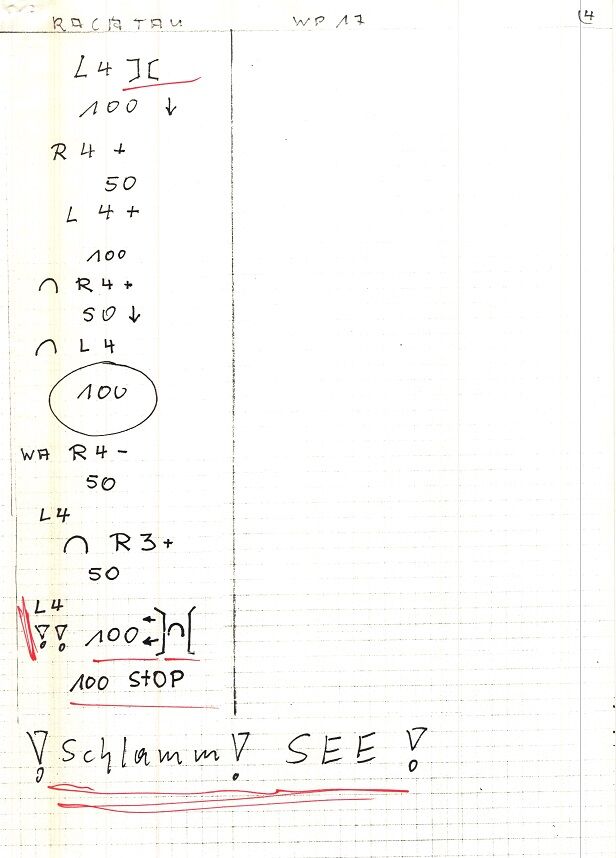 RACHTAU WP 17 4
L 4 ][
100 ↓
R 4 +
50
L 4 +
100
∩ R 4 +
50 ↓
∩ L 4
100
WA R 4 -
50
L 4
∩ R 3 +
50
L 4
!! 100 ← ← ]∩[
100 STOP
! Schlamm ! SEE !